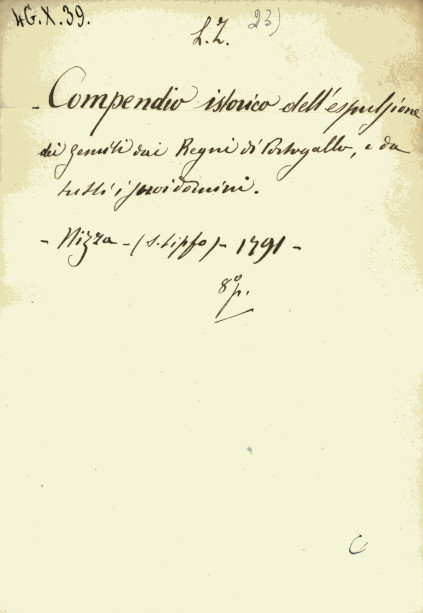 4G.X.39.
L.Z. 23)
- Compendio istorico dell'espulsione
dei gesuiti dai Regni di Portogallo, e da
tutti i suoi domini.
- Nizza - (s. tipfo) - 1791 -
8º p.
C